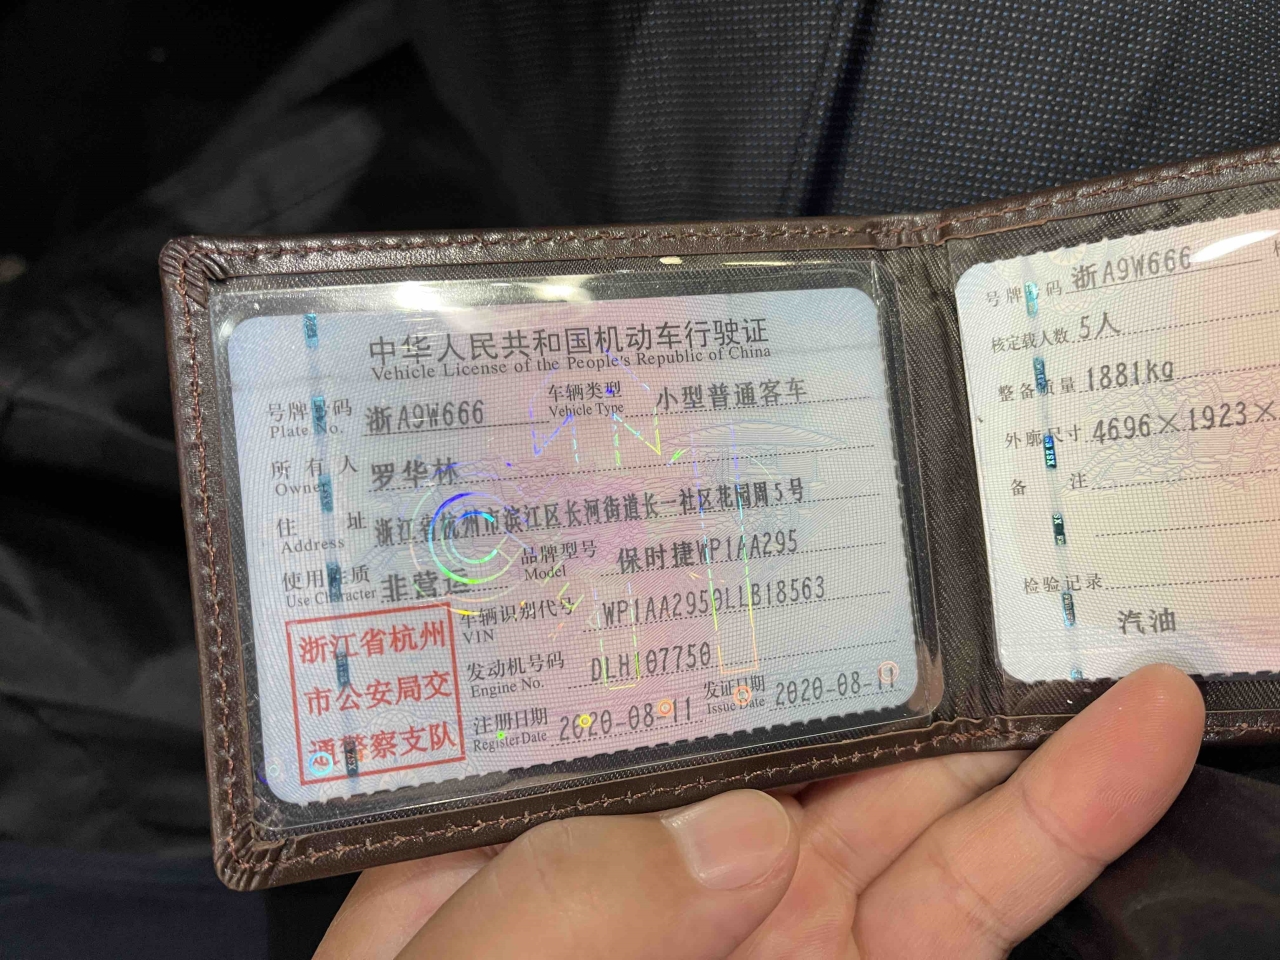 中华人民共和国机动车行驶证
Vehicle License of the People's Republic of China
号牌号码 Plate No. 浙A9W666 车辆类型 Vehicle Type 小型普通客车
所有人 Owner 罗华林
住址 Address 浙江省杭州市滨江区长河街道长一社区花园周5号
使用性质 Use Character 非营运 品牌型号 Model 保时捷WP1AA295
车辆识别代号 VIN WP1AA2950LLB18563
发动机号码 Engine No. DLH107750
注册日期 Register Date 2020-08-11 发证日期 Issue Date 2020-08-11
浙江省杭州
市公安局交
通警察支队
号牌号码 浙A9W666
核定载人数 5人
整备质量 1881kg
外廓尺寸 4696×1923×
备注
检验记录
汽油